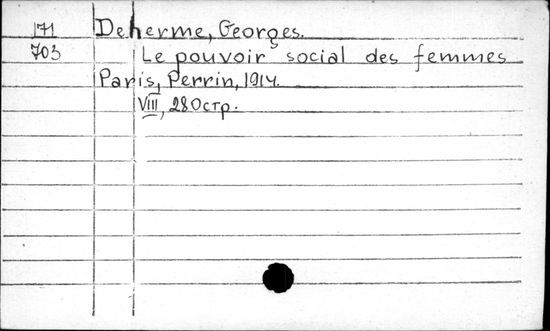 171 Deherme, Georges.
703 Le pouvoir social des femmes
Paris, Perrin, 1914.
VIII, 280стр.